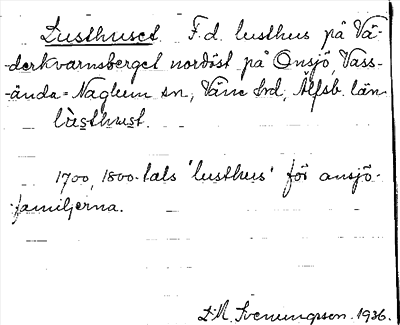 Lusthuset. F.d. lusthus på Vä-
derkvarnsberget nordöst på Onsjö, Vass-
ända-Naglum sn, Väne hd, Älfsb. län
lùsthusт.
1700, 1800-tals 'lusthus' för onsjö-
familjerna.
D. A. Svenungsson. 1936.